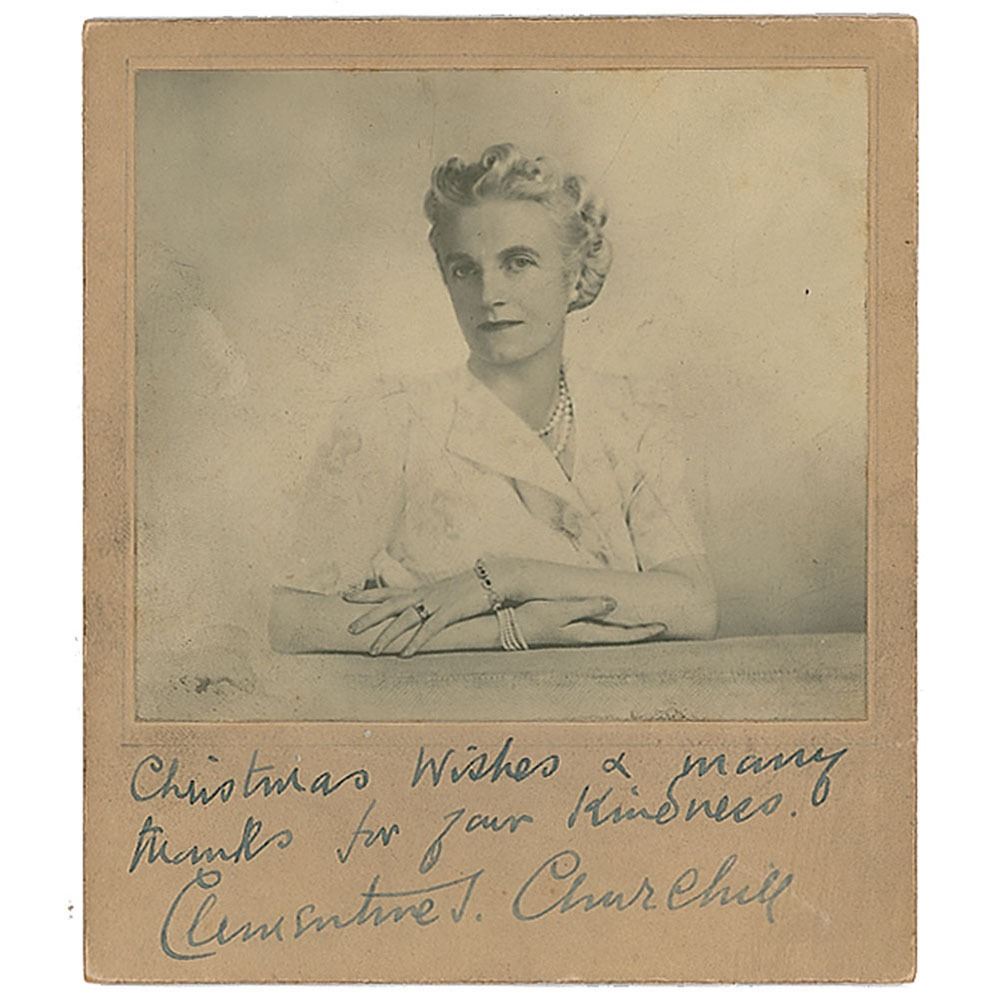 Christmas Wishes & many
thanks for your Kindness.
Clementine S. Churchill